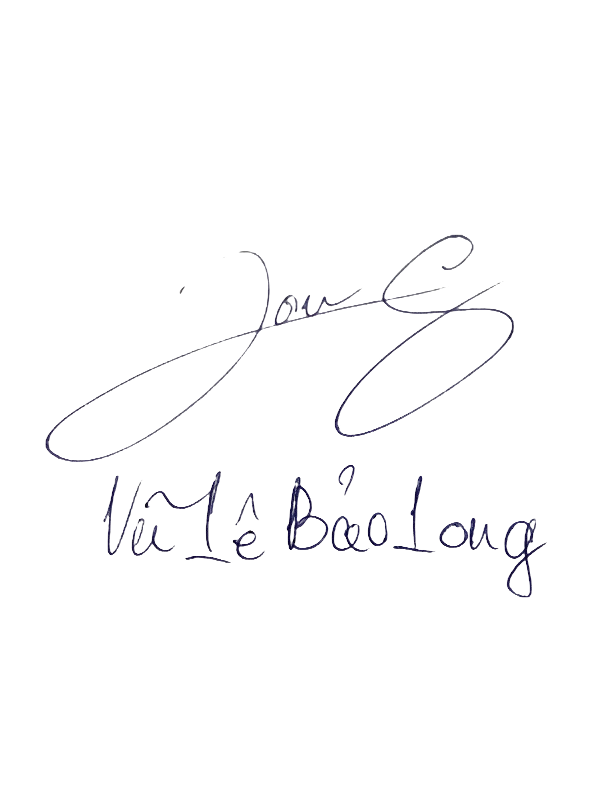 Long
Vũ Lê Bảo Long